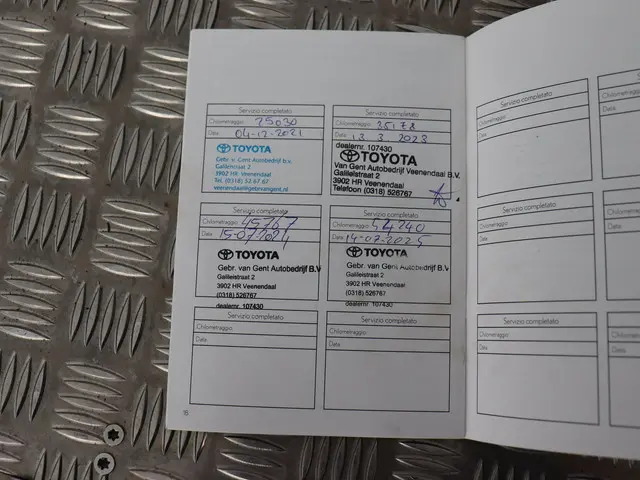 Servizio completato
Chilometraggio 25030
Data 04-12-2021
TOYOTA
Gebr. v. Gent Autobedrijf b.v.
Galileistraat 2
3902 HR Veenendaal
Tel. (0318) 52 67 67
veenendaal@gebrvangent.nl
Servizio completato
Chilometraggio 35178
Data 13 3 2023
dealernr. 107430
TOYOTA
Van Gent Autobedrijf Veenendaal B.V.
Galileistraat 2
3902 HR Veenendaal
Telefoon (0318) 526767
Servizio completato
Chilometraggio
Data 15-07-2024
TOYOTA
Gebr. van Gent Autobedrijf B.V
Galileistraat 2
3902 HR Veenendaal
(0318) 526767
dealernr. 107430
Servizio completato
Chilometraggio 54240
Data 14-07-2025
TOYOTA
Gebr. van Gent Autobedrijf B.V
Galileistraat 2
3902 HR Veenendaal
(0318) 526767
dealernr. 107430
Servizio completato
Chilometraggio
Data
Servizio completato
Chilometraggio
Data
16
Servizio completato
Chilometraggio
Data
Servizio completato
Chilometraggio
Data
Servizio completato
Chilometraggio
Data
Chilometraggio
Data
Chilometraggio
Data
Chilometraggio
Data